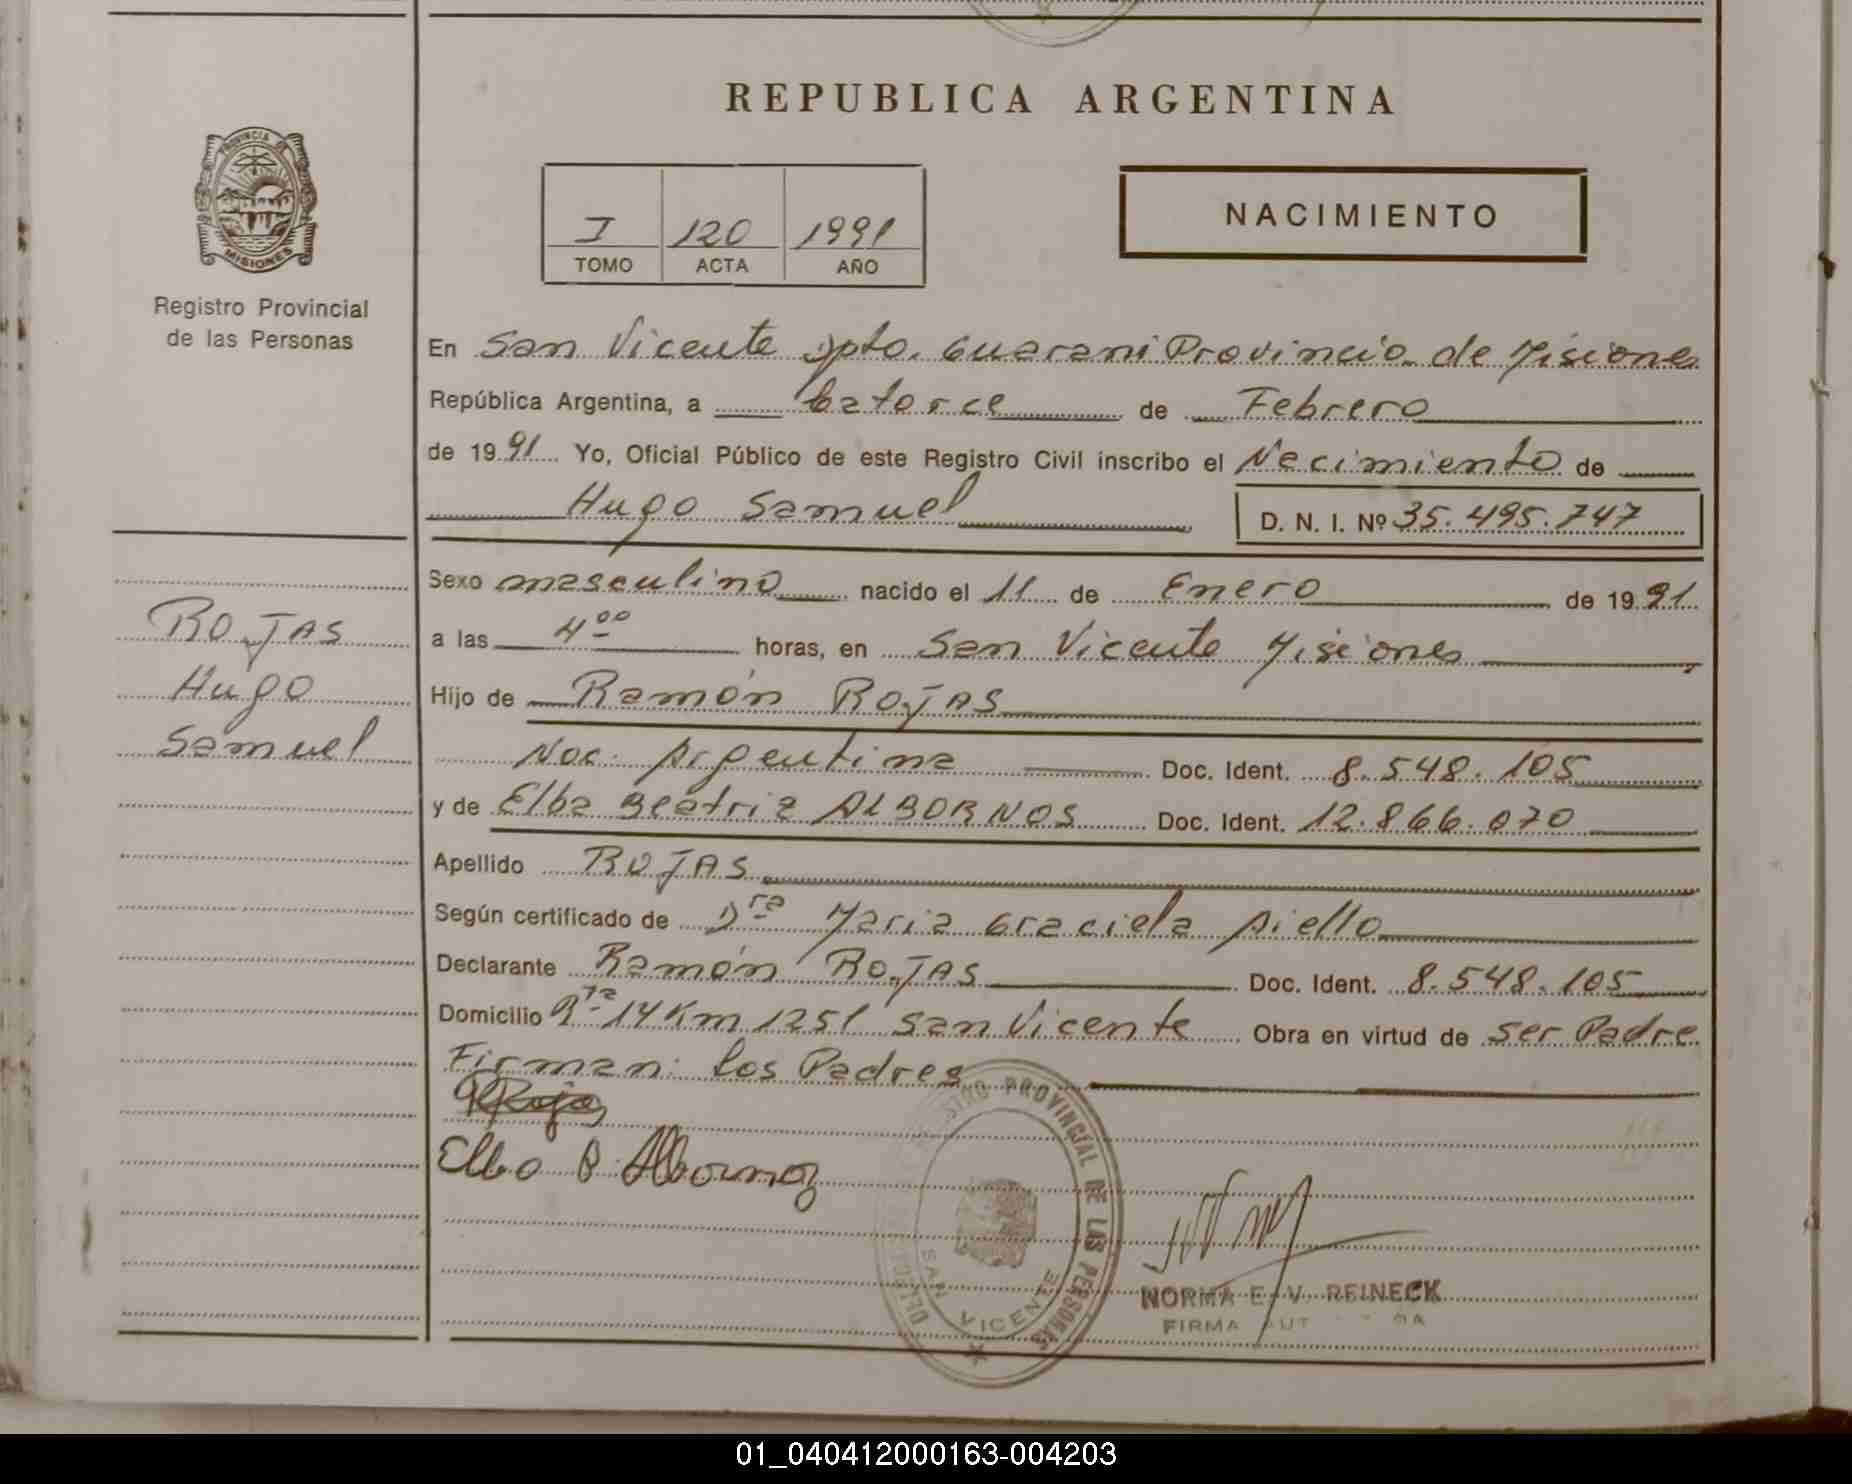 REPUBLICA ARGENTINA
PROVINCIA DE
MISIONES
Registro Provincial
de las Personas
I 120 1991
TOMO ACTA AÑO
NACIMIENTO
En San Vicente Dpto. Guarani Provincia de Misiones
República Argentina, a Catorce de Febrero
de 1991 Yo, Oficial Público de este Registro Civil inscribo el Nacimiento de
Hugo Samuel
D. N. I. Nº 35.495.747
Sexo masculino nacido el 11 de Enero de 1991
a las 4⁰⁰ horas, en San Vicente Misiones
Hijo de Ramón ROJAS
Nac. Argentina Doc. Ident. 8.548.105
y de Elba Beatriz ALBORNOS Doc. Ident. 12.866.070
Apellido ROJAS
Según certificado de Dra Maria Graciela Aiello
Declarante Ramón ROJAS Doc. Ident. 8.548.105
Domicilio Rta 14 Km 1251 San Vicente Obra en virtud de ser Padre
Firman: los Padres
RRojas
Elba B Albornoz
ROJAS
Hugo
Samuel
REGISTRO PROVINCIAL DE LAS PERSONAS
SAN VICENTE
NORMA E. V. REINECK
FIRMA
01_040412000163-004203